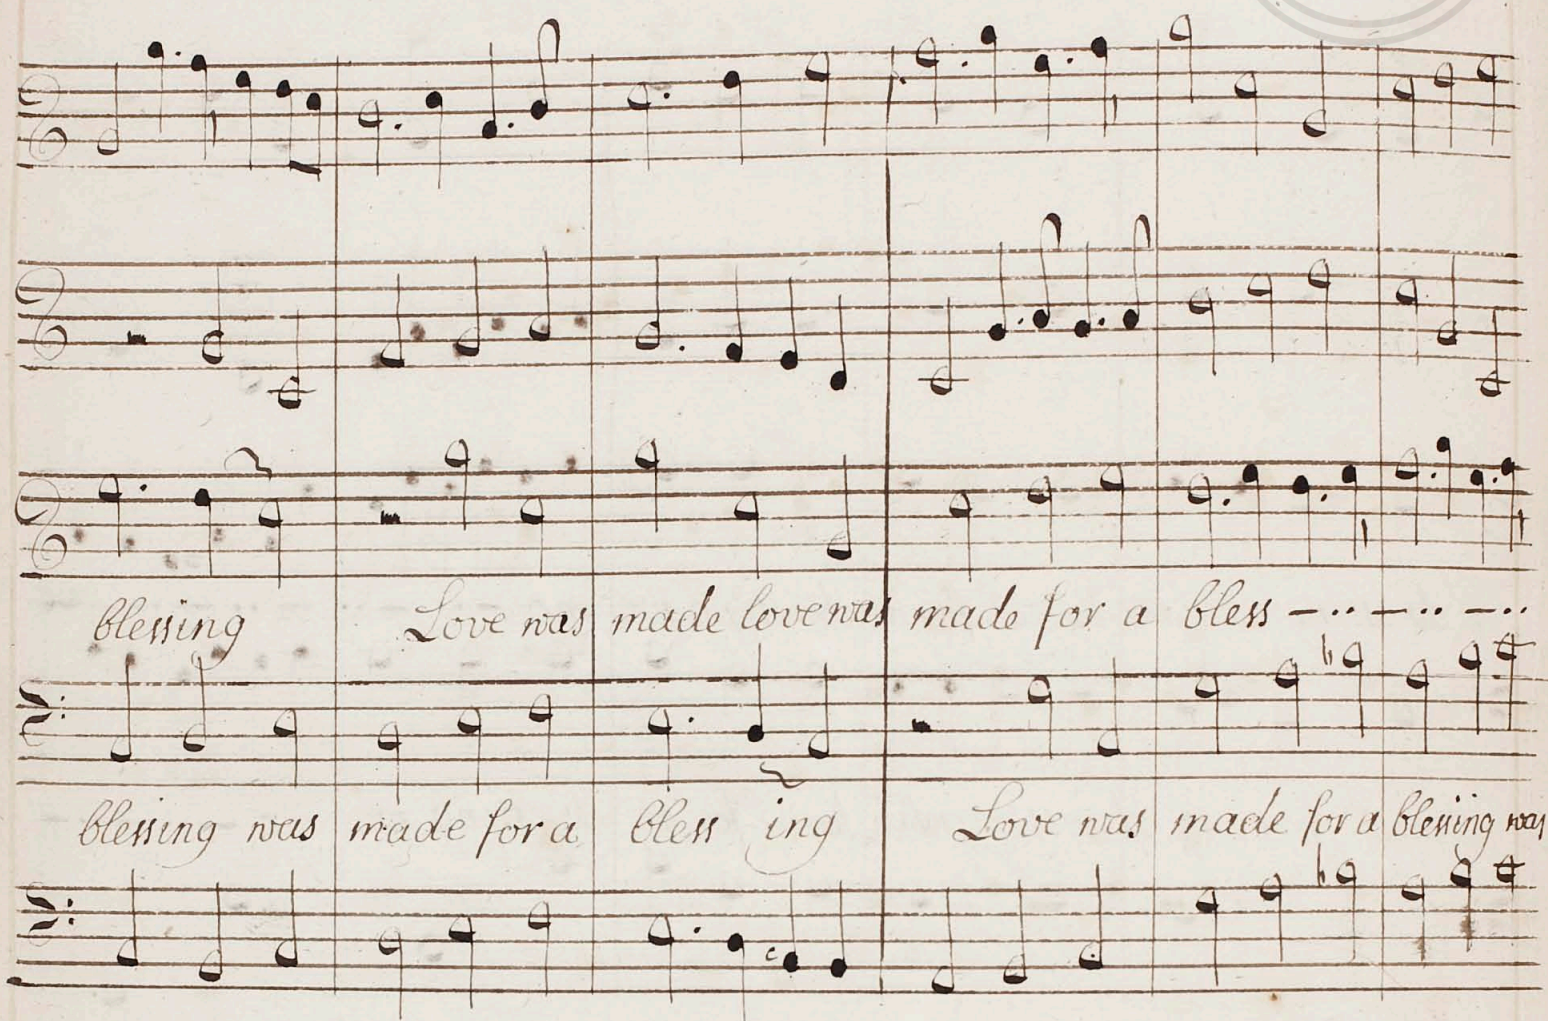 blessing Love was made love was made for a bless - .. - .. - ..
blessing was made for a bless ing Love was made for a blessing was